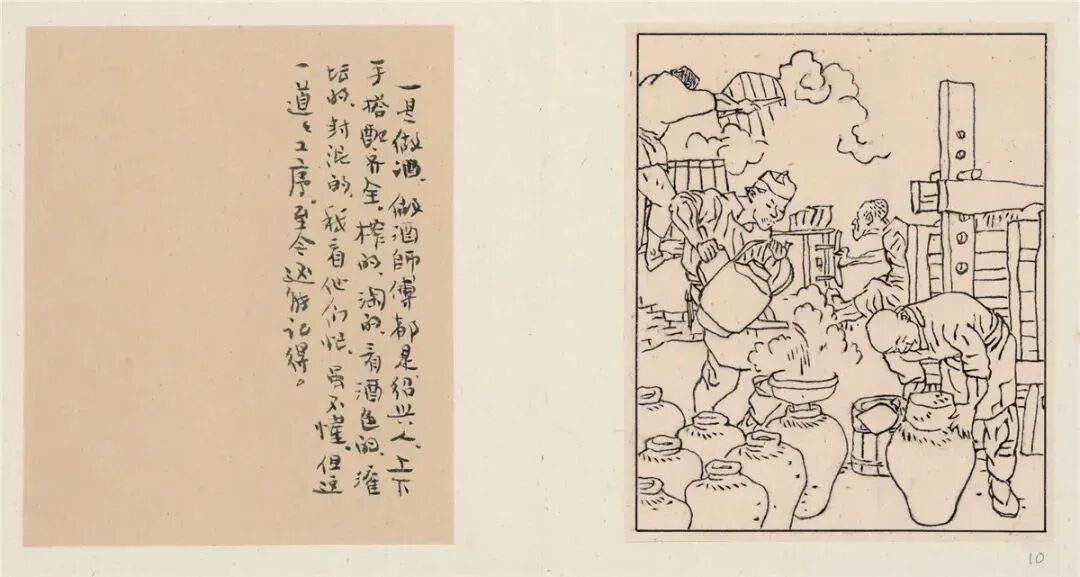 一是做酒，做酒師傅都是绍兴人，上下
手搭配齐全，榨的，淘的，看酒色的，灌
坛的，封泥的，我看他们忙，虽不懂，但这
一道々工序，至今还能记得。
10